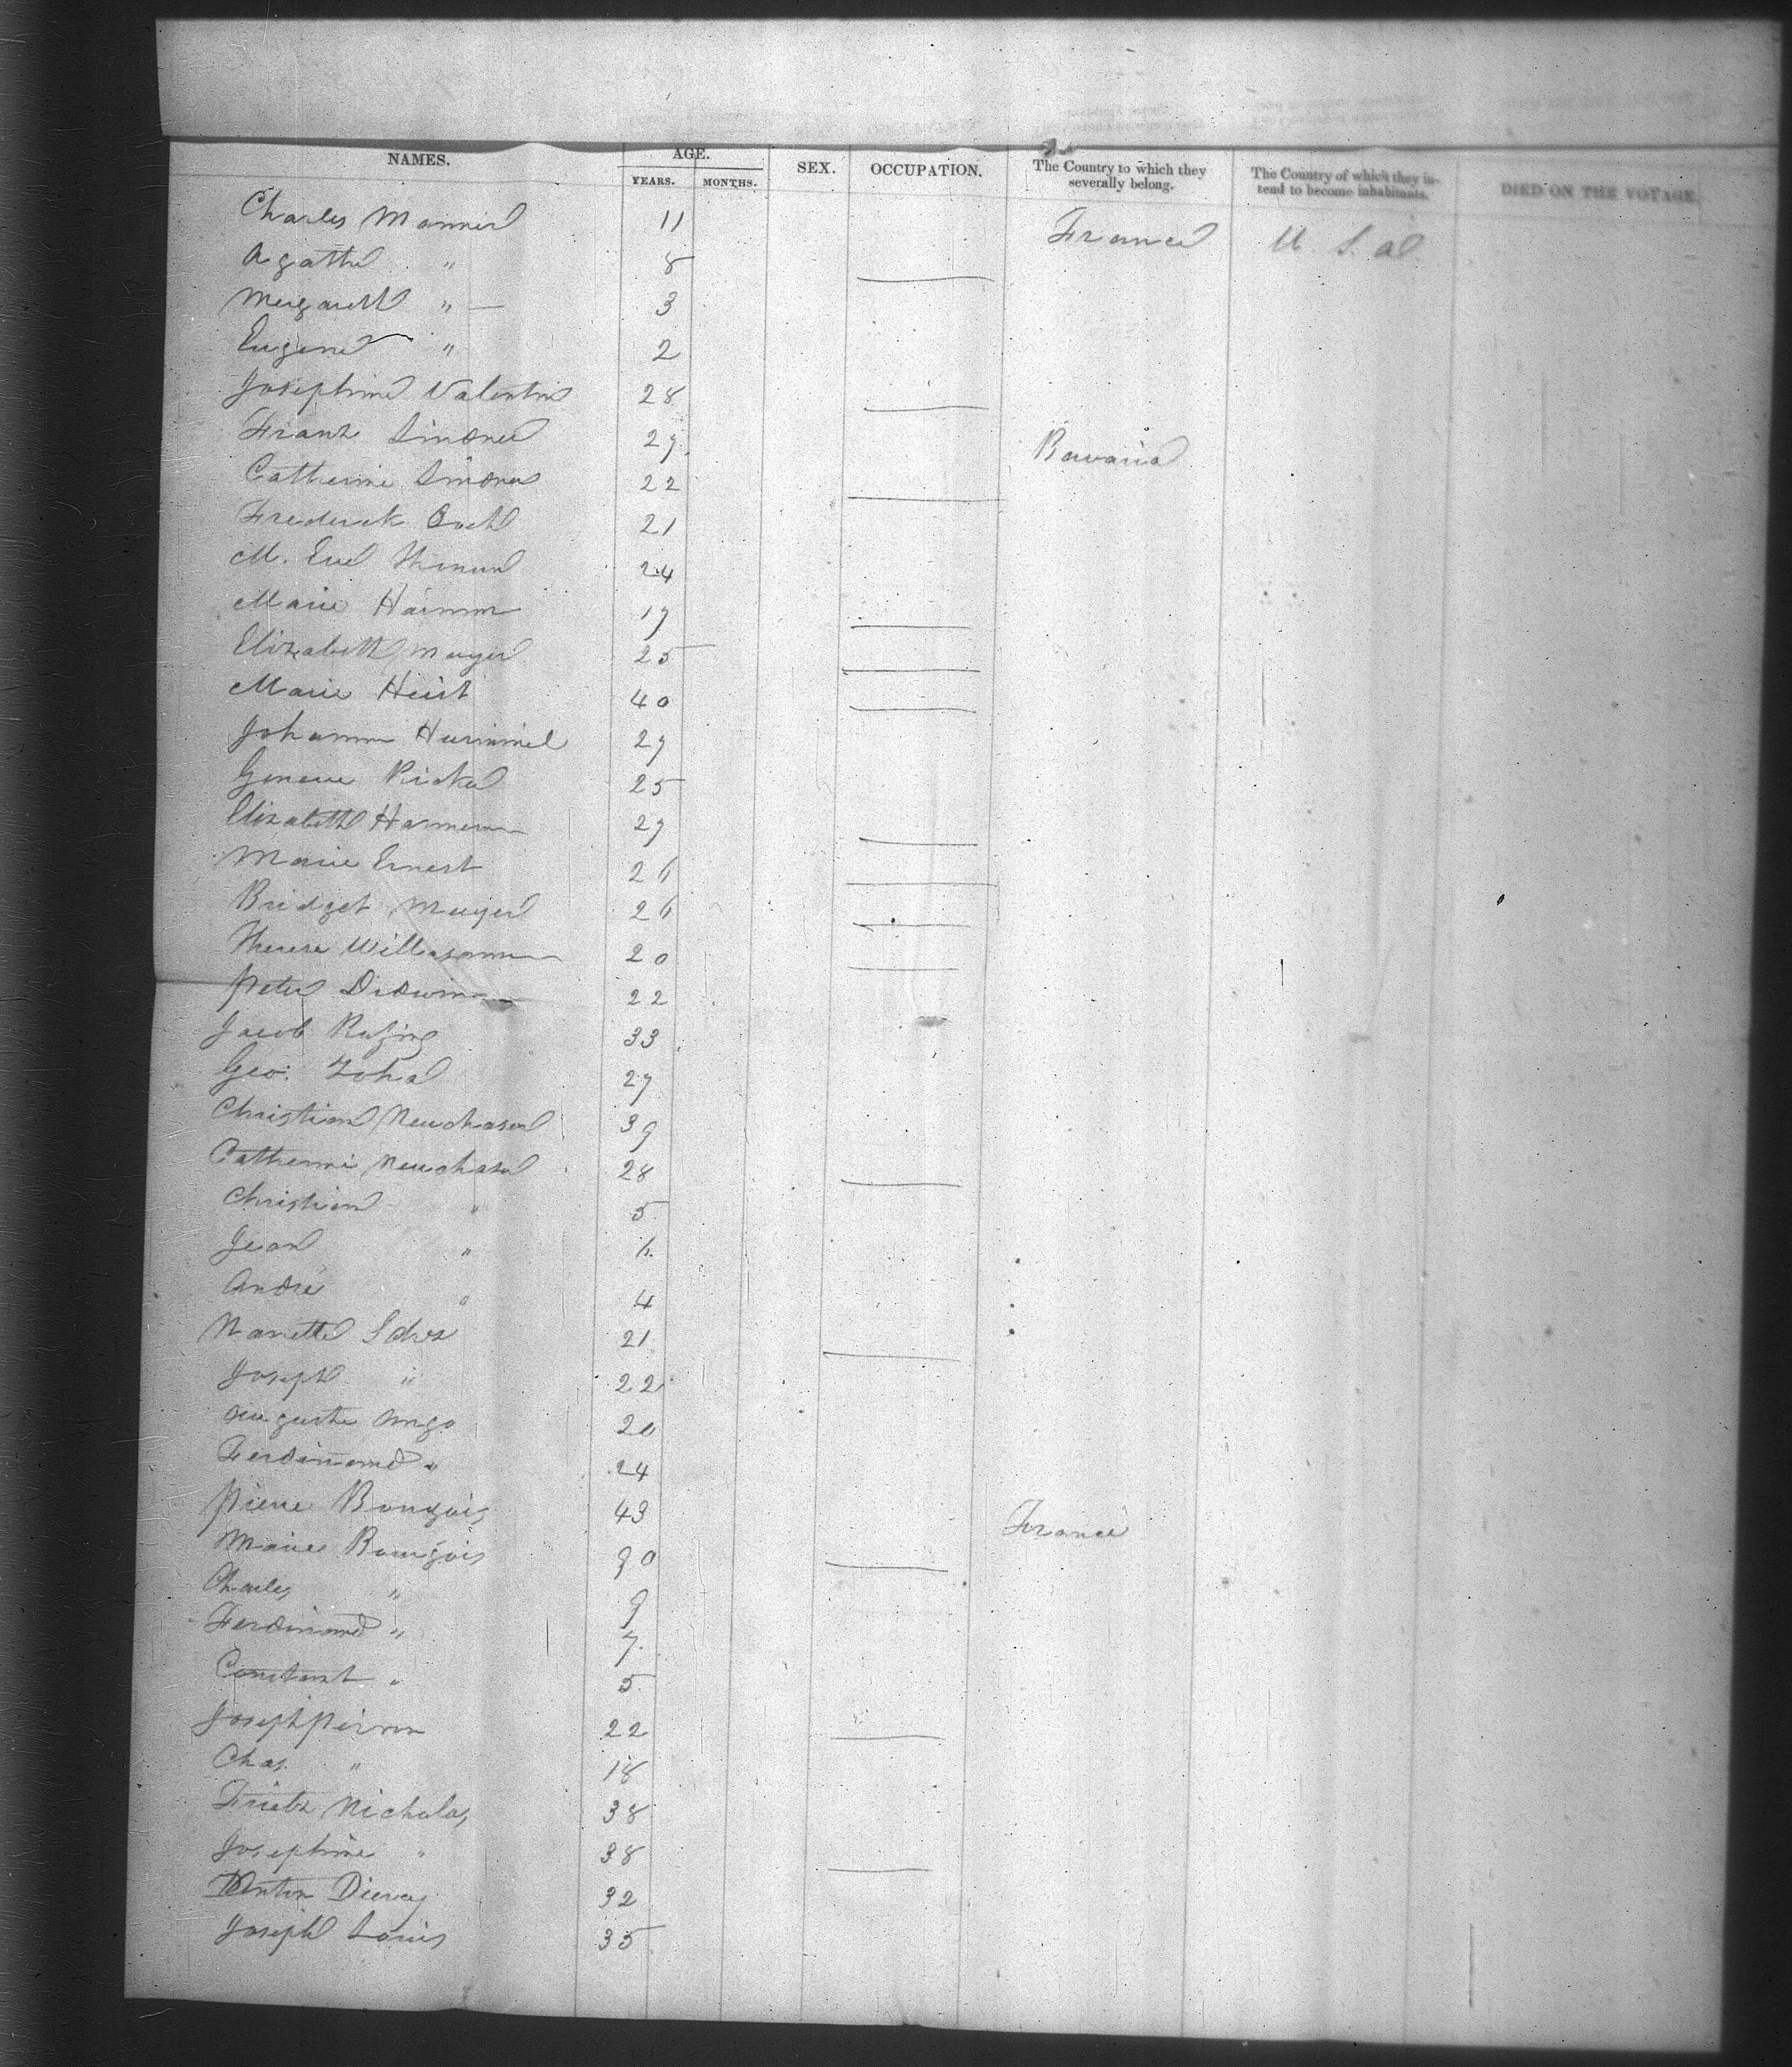 NAMES. AGE. SEX. OCCUPATION. The Country to which they severally belong. The Country of which they intend to become inhabitants. DIED ON THE VOYAGE.
YEARS. MONTHS.
Charles 11 France U. S. A.
Agathe " 8
Margareth " 3
Eugene " 2
Josephine Valentin 28
Franz Lindner 29 Bavaria
Catherine Lindner 22
Frederick 21
M. Eve 24
Marie Hamm 19
Elizabeth Meyer 25
Marie Heist 40
Johann Hummel 29
Geneve 25
Elizabeth 29
Marie Ernest 26
Bridget Meyer 26
Therese 20
Peter 22
Jacob 33
Geo. 27
Christian Neuchasel 39
Catherine Neuchasel 28
Christian " 5
Jean " 6
Andre " 4
Nanette 21
Joseph " 22
Auguste 20
Ferdinand " 24
Pierre Bourgois 43 France
Marie Bourgois 30
Charles " 9
Ferdinand " 7
Constant " 5
Joseph Pierron 22
Chas. " 18
Nicholas 38
Josephine " 38
32
Joseph Louis 35